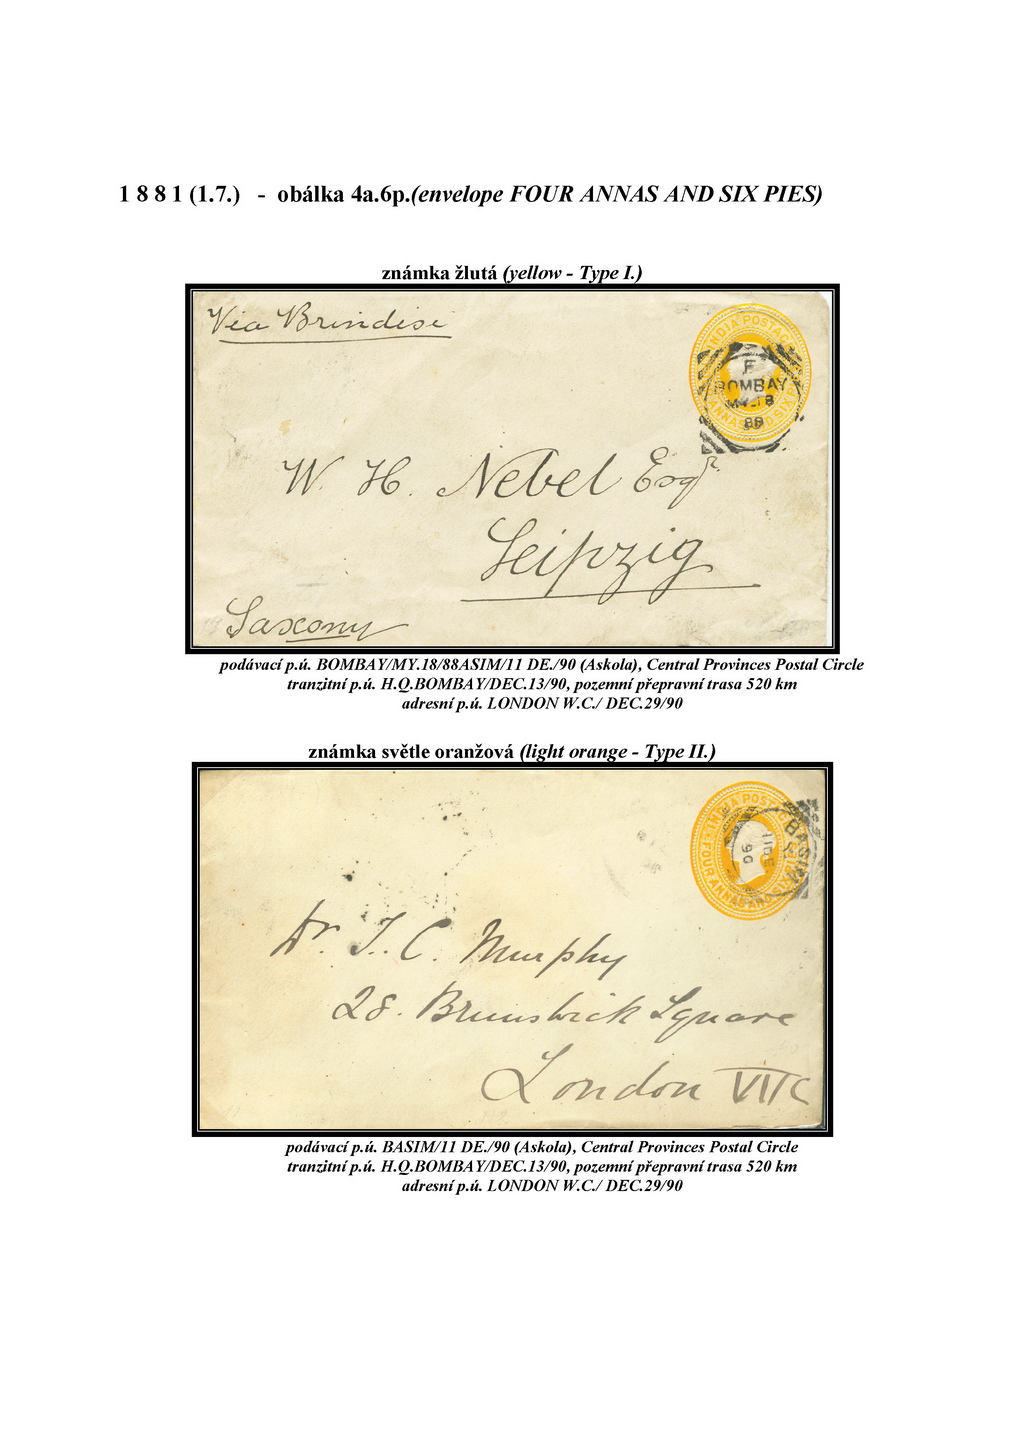 1 8 8 1 (1.7.) - obálka 4a.6p.(envelope FOUR ANNAS AND SIX PIES)
známka žlutá (yellow - Type I.)
Via Brindisi
INDIA POSTAGE
F
BOMBAY
MY.18
88
ANNAS AND SIX
W. H. Nebel Esqr.
Leipzig
Saxony
podávací p.ú. BOMBAY/MY.18/88ASIM/11 DE./90 (Askola), Central Provinces Postal Circle
tranzitní p.ú. H.Q.BOMBAY/DEC.13/90, pozemní přepravní trasa 520 km
adresní p.ú. LONDON W.C./ DEC.29/90
známka světle oranžová (light orange - Type II.)
INDIA POSTAGE
FOUR ANNAS AND SIX
BASIM
11 DE
90
Dr. J. C. Murphy
28. Brunswick Square
London WC
podávací p.ú. BASIM/11 DE./90 (Askola), Central Provinces Postal Circle
tranzitní p.ú. H.Q.BOMBAY/DEC.13/90, pozemní přepravní trasa 520 km
adresní p.ú. LONDON W.C./ DEC.29/90